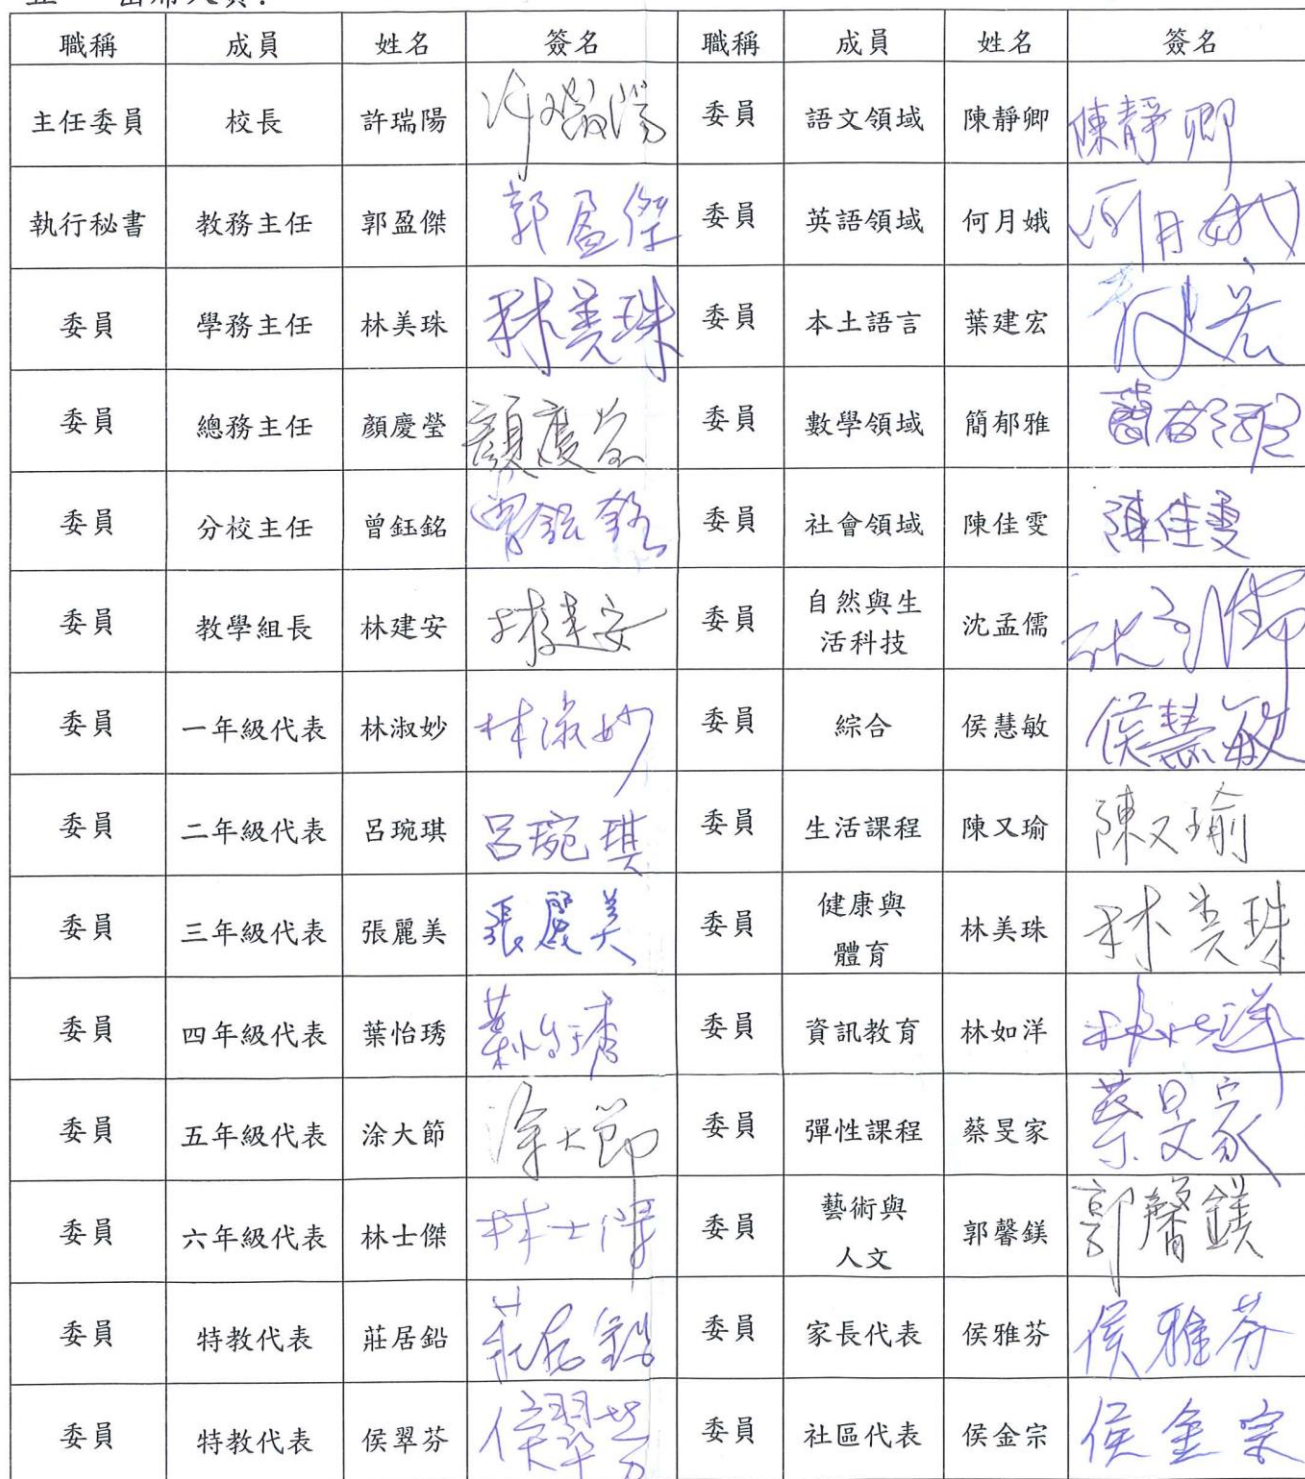 職稱 成員 姓名 簽名 職稱 成員 姓名 簽名
主任委員 校長 許瑞陽 許瑞陽 委員 語文領域 陳靜卿 陳靜卿
執行秘書 教務主任 郭盈傑 郭盈傑 委員 英語領域 何月娥 何月娥
委員 學務主任 林美珠 林美珠 委員 本土語言 葉建宏
委員 總務主任 顏慶瑩 顏慶瑩 委員 數學領域 簡郁雅 簡郁雅
委員 分校主任 曾鈺銘 曾鈺銘 委員 社會領域 陳佳雯 陳佳雯
委員 教學組長 林建安 林建安 委員 自然與生
活科技 沈孟儒 沈孟儒
委員 一年級代表 林淑妙 林淑妙 委員 綜合 侯慧敏 侯慧敏
委員 二年級代表 呂琬琪 呂琬琪 委員 生活課程 陳又瑜 陳又瑜
委員 三年級代表 張麗美 張麗美 委員 健康與
體育 林美珠 林美珠
委員 四年級代表 葉怡琇 葉怡琇 委員 資訊教育 林如洋 林如洋
委員 五年級代表 涂大節 涂大節 委員 彈性課程 蔡旻家 蔡旻家
委員 六年級代表 林士傑 林士傑 委員 藝術與
人文 郭馨鎂 郭馨鎂
委員 特教代表 莊居鉛 莊居鉛 委員 家長代表 侯雅芬 侯雅芬
委員 特教代表 侯翠芬 侯翠芬 委員 社區代表 侯金宗 侯金宗